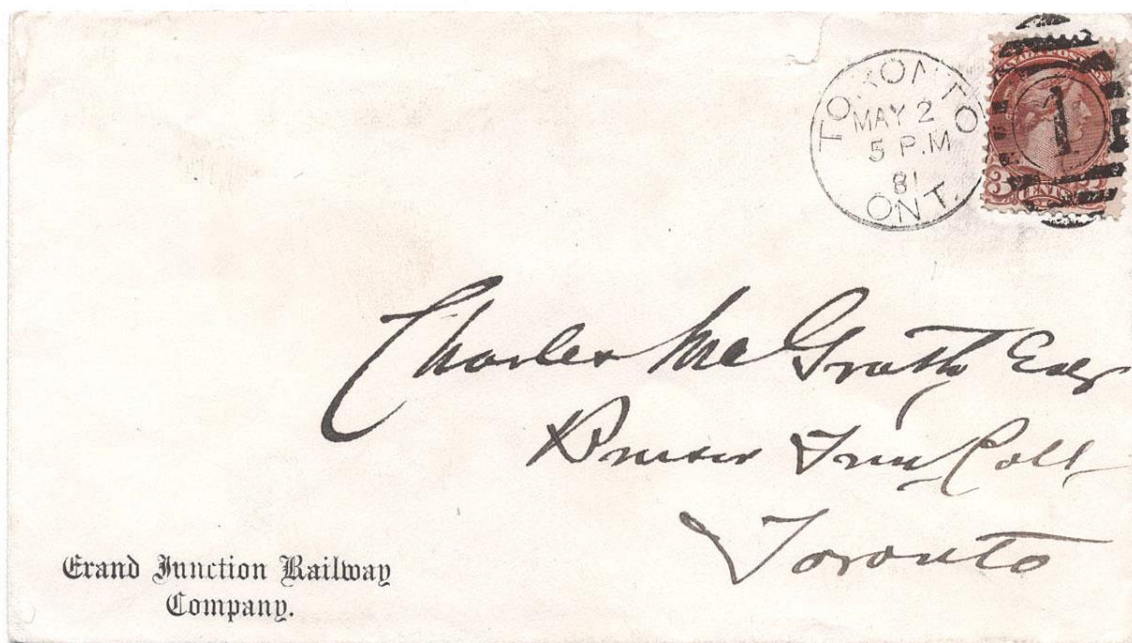 TORONTO
MAY 2
5 P.M
81
ONT.
1
3 CENTS
Charles McGrath Esq
Toronto
Grand Junction Railway
Company.